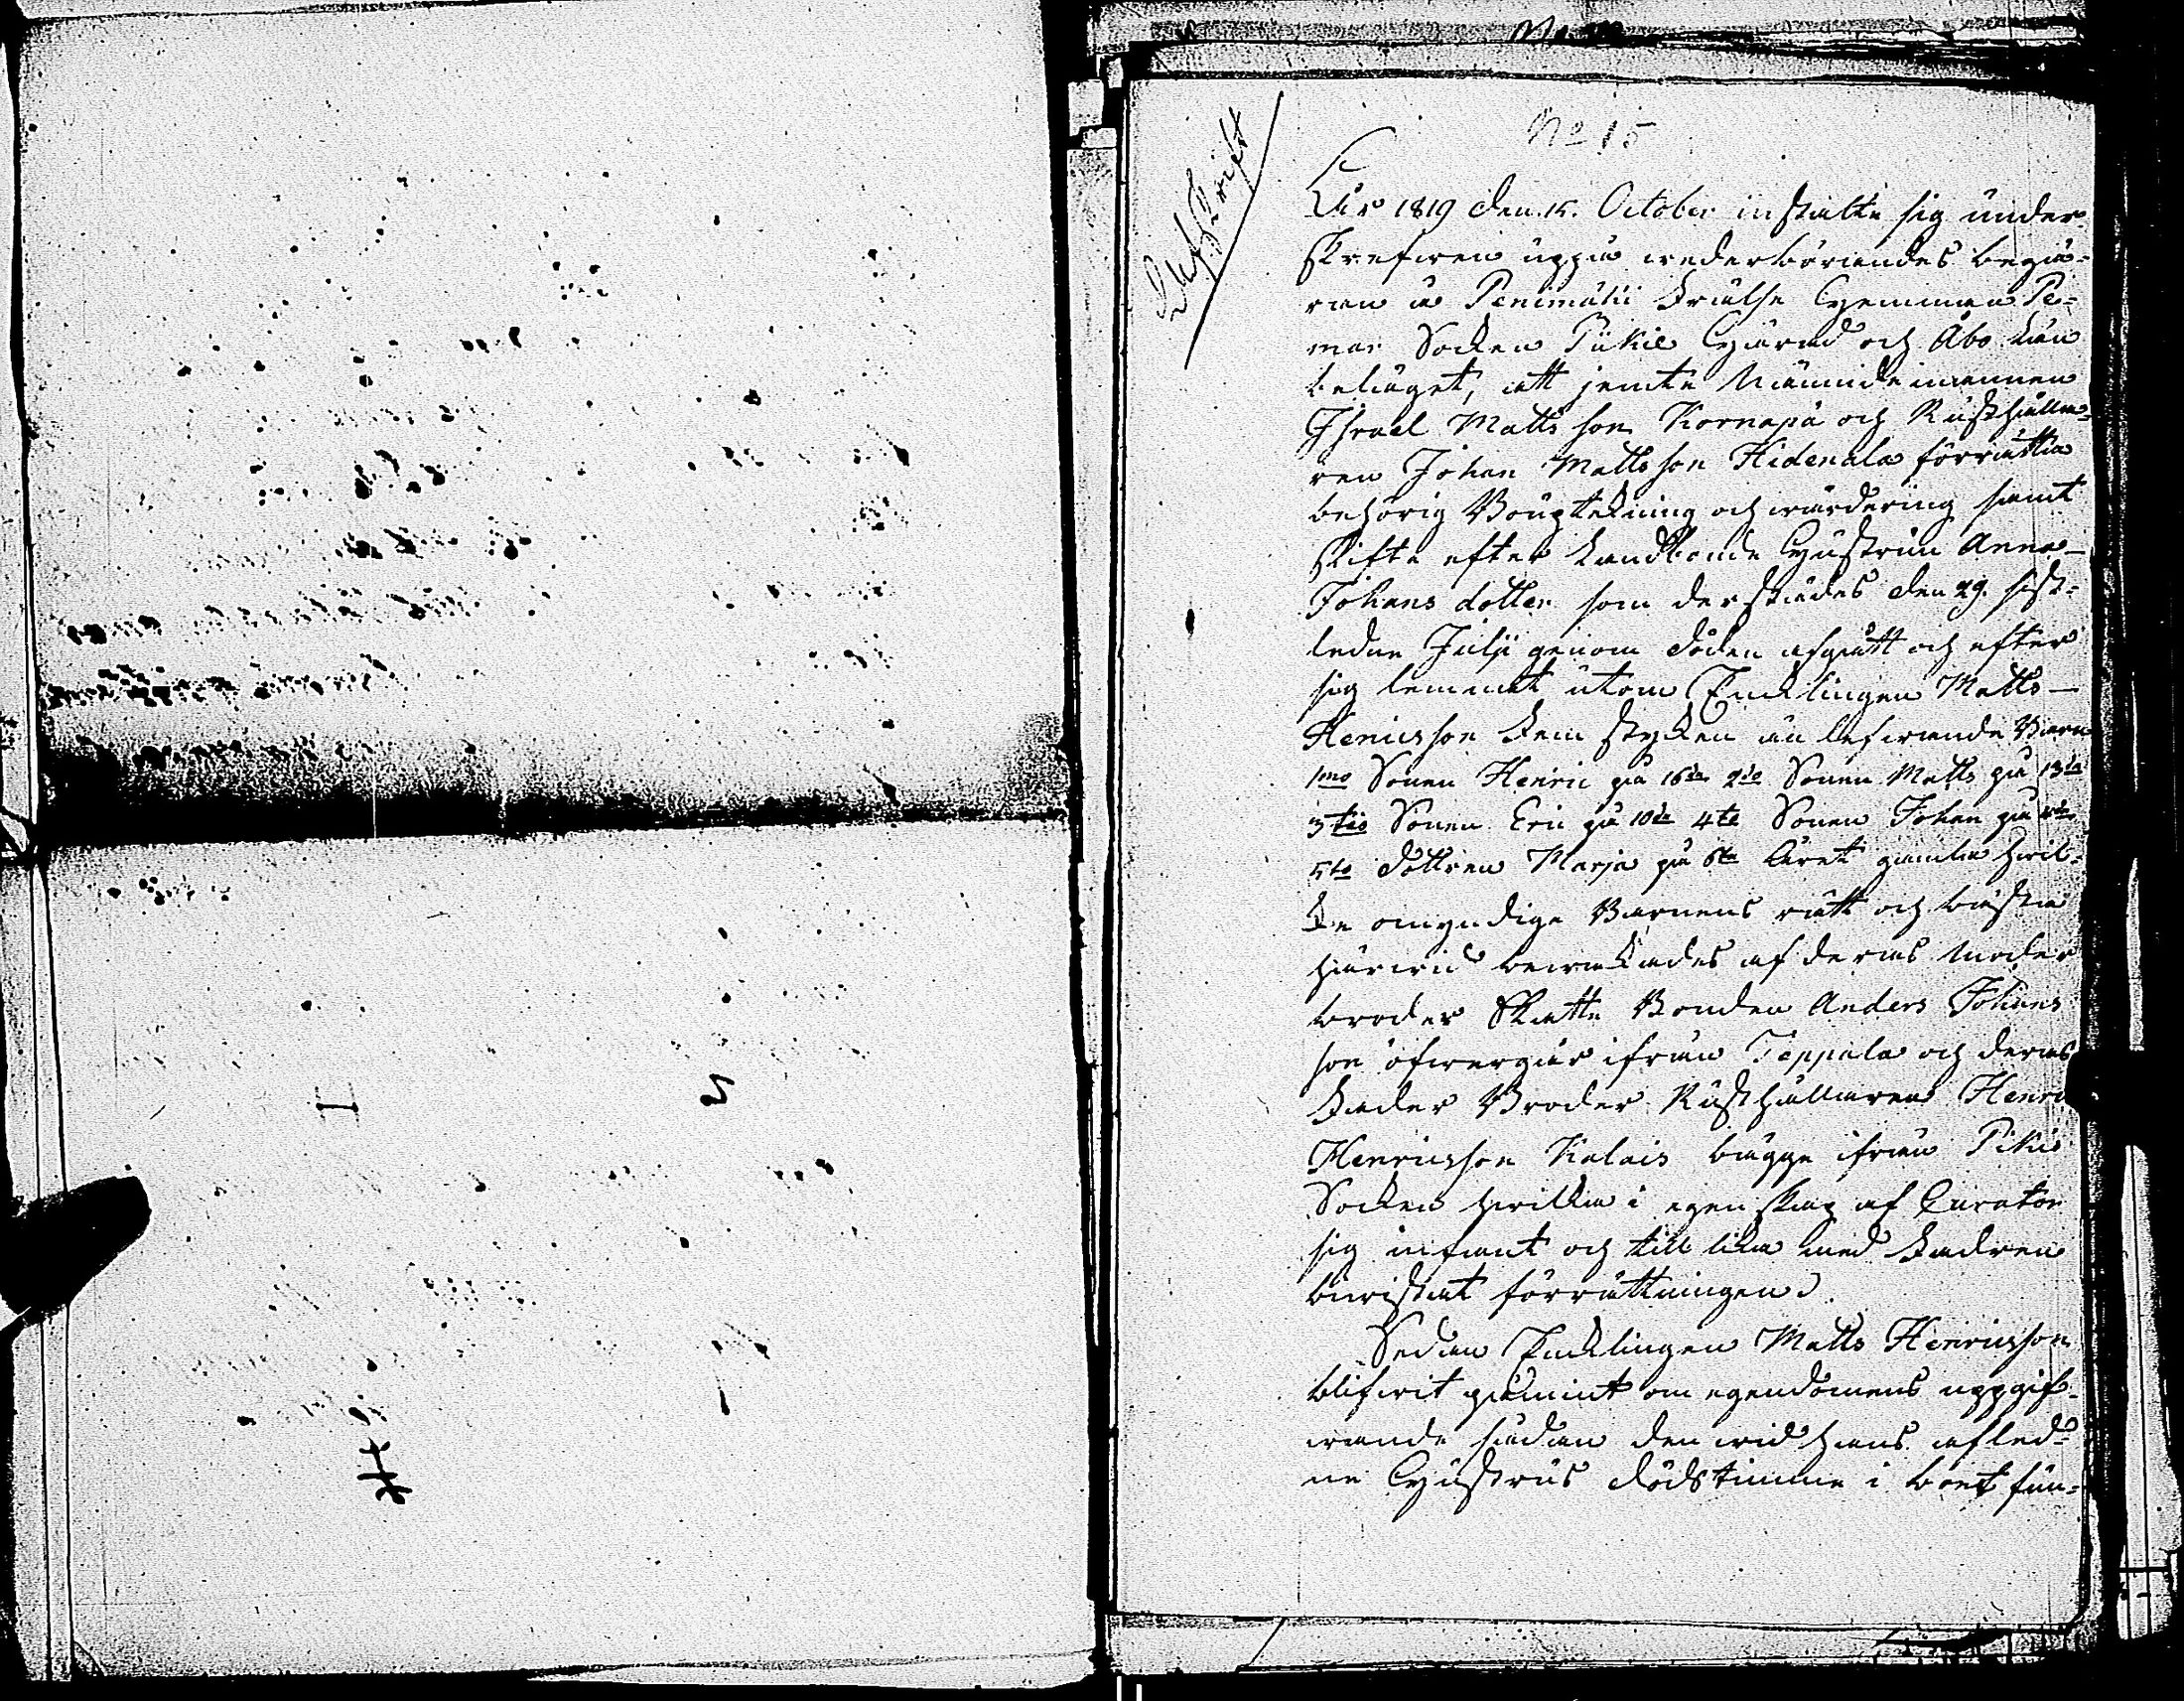 No 15
Afskrift
År 1819 den 15. October instälte sig under-
skrefwen uppå wederbörandes begä-
ran å Penimäki Frälse Hemman Pe-
mar Socken Pikie Härad och Åbo Län
beläget, att jemte Nämndemannen
Israel Matts son Kornapä och Rusthålla-
ren Johan Mattsson Hidenala förrätta
behörig Bouptekning och wärdering samt
skifte efter Landbonde Hustrun Anna
Johans dotter som derstädes den 29. sist-
ledne Julji genom döden afgått och efter
sig lemnat utom Encklingen Matts
Henricsson Fem stycken än lefwande Barn
1mo Sonen Henric på 16de 2do Sonen Matts på 13de
3tio Sonen Eric på 10de 4to Sonen Johan på
5to dottren Marja på 6te Året gamla hwil-
ka omyndige Barnens rätt och bästa
härwid bewakades af deras Moder
broder Skatte Bonden Anders Johans
son öfwergår ifrån Teppala och deras
Fader Broder Rusthållaren Henric
Henricsson Kalais bägge ifrån Pikie
Socken hwilka i egenskap af Curator
sig infant och till lika med Fadren
biwistat förrättningen.
Sedan Encklingen Matts Henricsson
blifwit påmint om egendomens uppgif-
wande sådan den wid hans afled-
ne Hustrus dödstimma i boet fun-